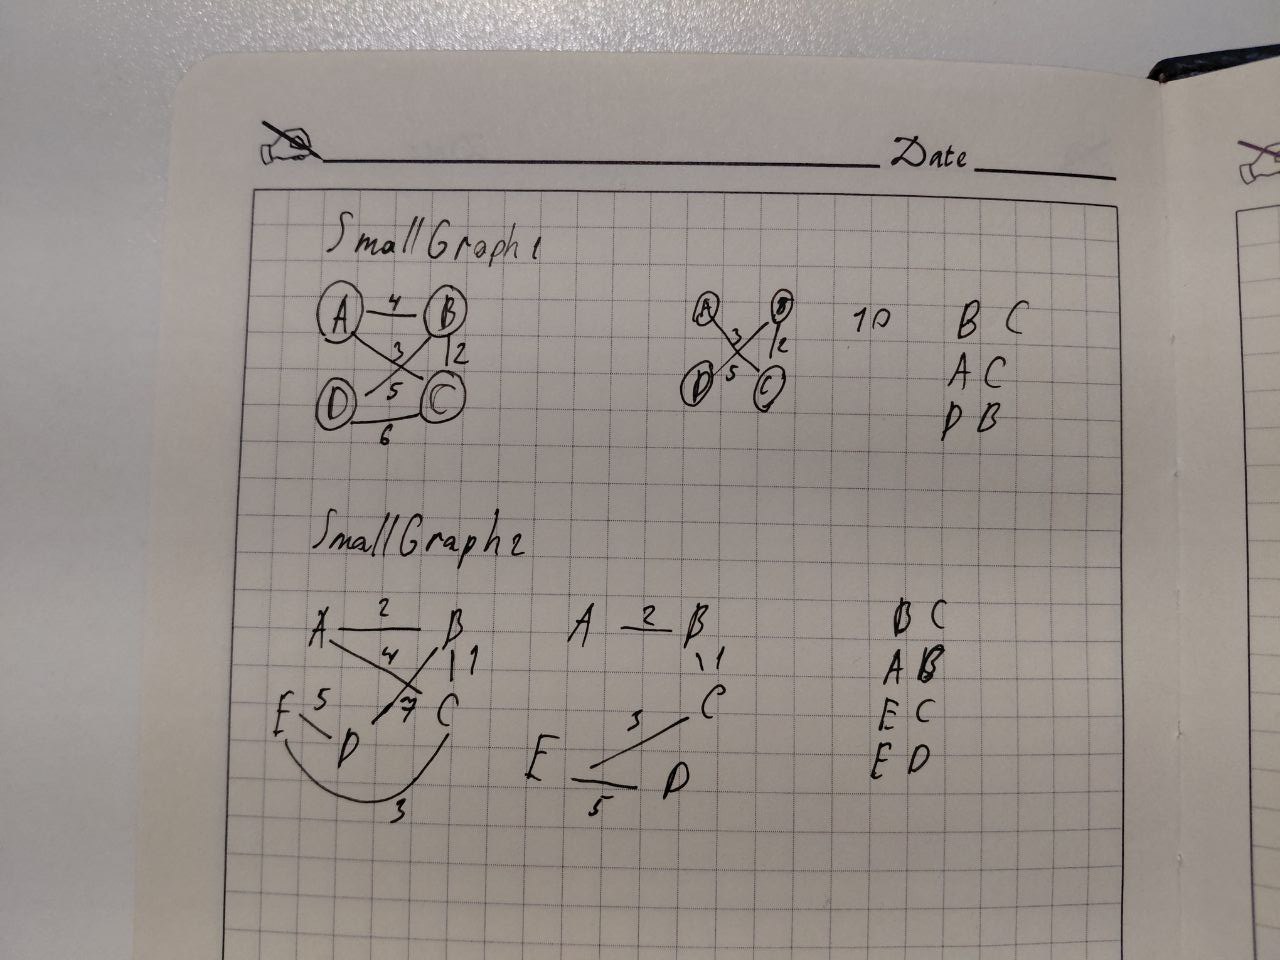 Date
Small Graph 1
A 4 B
3 2
D 5 C
6
A B
3 2
D 5 C
10
B C
A C
D B
Small Graph 2
A 2 B
4 1
E 5 D 7 C
3
A 2 B
1
C
3
E D
5
B C
A B
E C
E D